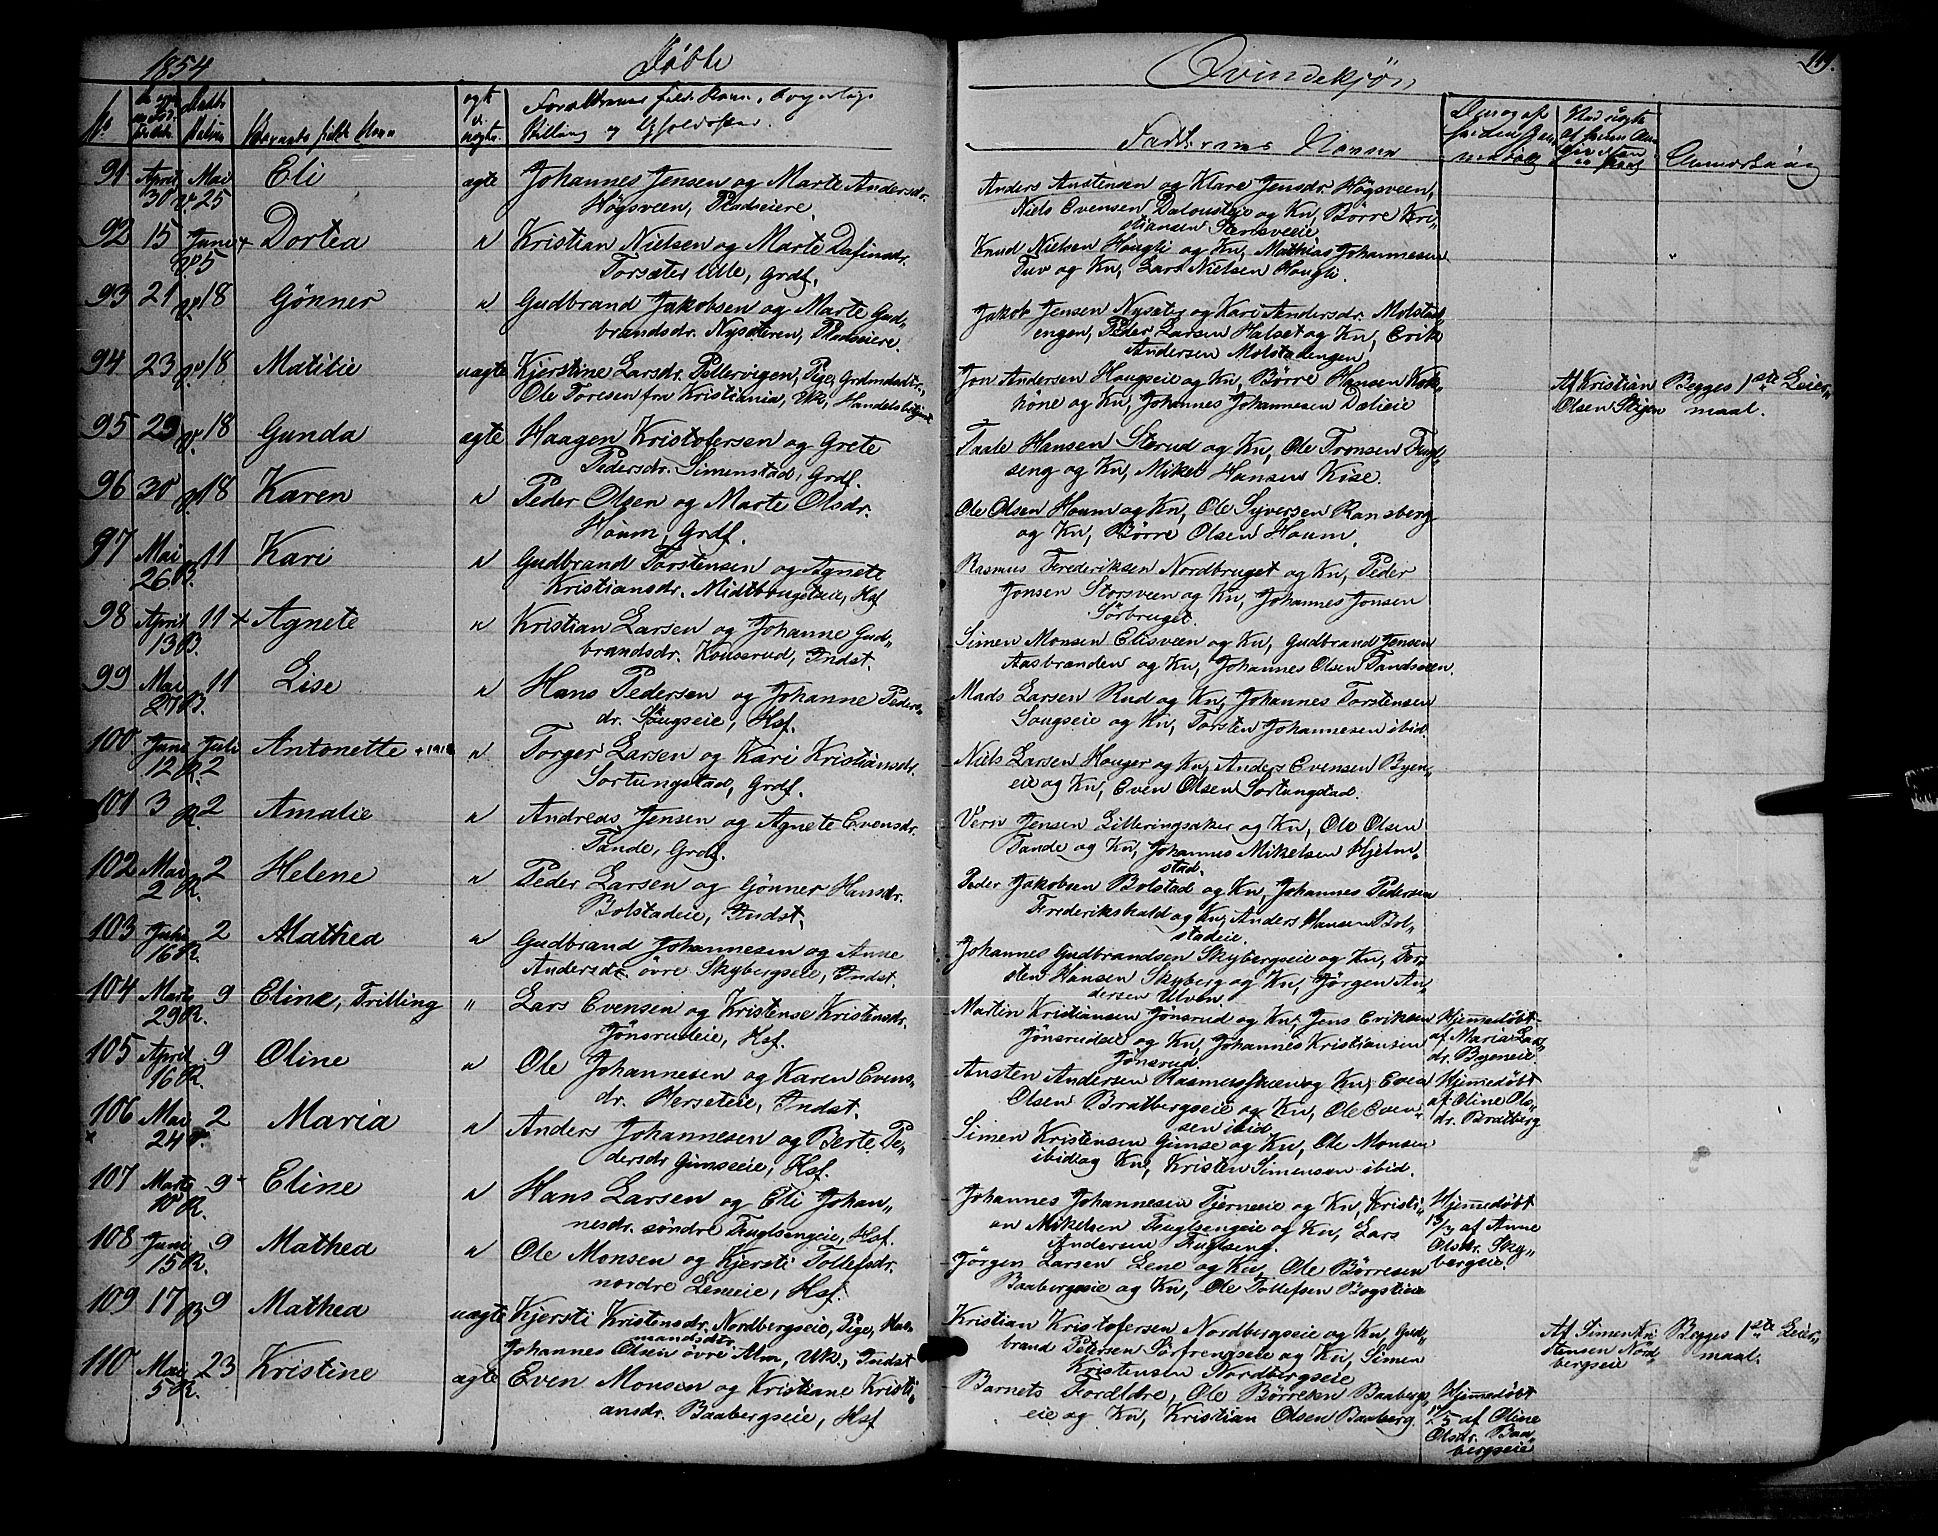 1854
Døbte
Qvindekjøn
Barnets fulde Navn
Forældrenes fulde Navn, Borgerlige
Stilling og Opholdssted.
Faddernes Navne
Anmærkning
91 April Mai Eli ægte Johannes Jensen og Marte Andersdr.
30 25 Høgsveen, Pladseiere.
Anders Anstensen og Klare Jensdr. Høgsveen,
Niels Evensen Dalonseie og Kn, Børre Kri-
stiansen
92 15 Juni + Dortea " Kristian Nielsen og Marte Dafinsdr.
5 Torsæter lille, Grdf.
Knud Nielsen Hougli og Kn, Mathias Johannesen
Tuv og Kn, Lars Nielsen Hougli.
93 21 18 Gönner " Gudbrand Jakobsen og Marte Gud-
brandsdr. Nysæteren, Pladseiere.
Jakob Jensen Nysæter og Kari Andersdr. Molstad
engen, Peder Larsen Halset og Kn, Erik
Andersen Molstadengen
94 23 18 Matilie uægte Kjerstine Larsdr. Pellervigen, Pige, Grdmdsdtr,
Ole Toresen fra Kristiania, Uk, Handelsbetjent
Jon Andersen Hougseie og Kn, Børre Hansen Kok-
höne og Kn, Johannes Johannesen Dælieie
Af Kristian Begges 1ste Leier-
Olsen Stigen maal.
95 29 18 Gunda ægte Haagen Kristofersen og Grete
Pedersdr. Simenstad, Grdf.
Taale Hansen Sterud og Kn, Ole Tronsen Fugl-
seng og Kn, Mikel Hansen Kise.
96 30 18 Karen " Peder Olsen og Marte Olsdr.
Houm, Grdf.
Ole Olsen Houm og Kn, Ole Syversen Ransberg
og Kn, Børre Olsen Houm.
97 Mai 11 Kari " Gudbrand Torstensen og Agnete
26 B. Kristiansdr. Midtbrugeteie, Hsf
Rasmus Frederiksen Nordbruget og Kn, Peder
Jonsen Storsveen og Kn, Johannes Jonsen
Sörbruget.
98 April 11 + Agnete " Kristian Larsen og Johanne Gud-
13 B. brandsdr. Kouserud, Indst.
Simen Monsen Elisveen og Kn, Gudbrand Jensen
Aasbranden og Kn, Johannes Olsen Tandsveen.
99 Mai 11 Lise " Hans Pedersen og Johanne Peders-
27 B. dr. Sougseie, Hsf.
Mads Larsen Rud og Kn, Johannes Torstensen
Sougseie og Kn, Torsten Johannesen ibid.
100 Juni Juli Antonette " Torger Larsen og Kari Kristiansdr.
12 R. 2 Sortungstad, Grdf.
Niels Larsen Houger og Kn, Anders Evensen Byen-
eie og Kn, Even Olsen Sortungstad.
101 3 R. 2 Amalie " Andreas Jensen og Agnete Evensdr.
Tande, Grdf.
Vern Jensen Lilleringsaker og Kn, Ole Olsen
Tande og Kn, Johannes Mikelsen Hjelm-
stad.
102 Mai 2 Helene " Peder Larsen og Gönner Hansdr.
2 R. Bolstadeie, Indst.
Peder Jakobsen Bolstad og Kn, Johannes Pedersen
Frederikshald og Kn, Anders Hansen Bol-
stadeie.
103 2 Mathea " Gudbrand Johannesen og Anne
16 R. Andersdr. övre Skybergseie, Indst.
Johannes Gudbrandsen Skybergseie og Kn, Tor-
sten Hansen Skyberg og Kn, Jörgen An-
dersen Ulven.
104 Marts 9 Eline, Trilling " Lars Evensen og Kristense Kristensdr.
29 R. Jönsrudeie, Hsf.
Martin Kristiansen Jönsrud og Kn, Jens Eriksen
Jönsrudeie og Kn, Johannes Kristiansen
Jönsrud.
Hjemmedøbt
af Maria Lars-
dr. Byeneie
105 April 9 Oline " Ole Johannesen og Karen Evens-
16 R. dr. Herseteie, Indst.
Austen Andersen Rasmusskuen og Kn, Even
Olsen Bratbergseie og Kn, Ole Even-
sen ibid
Hjemmedøbt
af Oline Ols-
dr. Bratberg
106 Mai 2 Maria " Anders Johannesen og Berte Pe-
x 24 dersdr Gimseeie, Hsf.
Simen Kristensen Gimse og Kn, Ole Monsen
ibid og Kn, Kristen Simensen ibid.
107 Marts 9 Eline " Hans Larsen og Eli Johan-
10 R. nesdr. søndre Fuglsengeie, Hsf.
Johannes Johannesen Tjerneie og Kn, Kristi-
an Mikelsen Fuglsengeie og Kn, Lars
Andersen Fuglseng.
Hjemmedøbt
13/3 af Anne
Olsdr. Sky-
bergseie.
108 Juni 9 Mathea " Ole Monsen og Kjersti Tollefsdr.
15 R. nordre Leneie, Hsf.
Jörgen Larsen Lene og Kn, Ole Børresen
Baabergseie og Kn, Ole Tollefsen Bogstieie
109 17 9 Mathea uægte Kjersti Kristensdr. Nordbergseie, Pige, Hus-
mandsdtr
Johannes Olsen övre Alm, Uk., Indst
Kristian Kristofersen Nordbergseie og Kn, Gud-
brand Petersen Sörfrengseie og Kn, Simen
Kristensen Nordbergseie
Af Simen Kri Begges 1ste Leier-
stensen Nord maal.
bergseie
110 Mai 23 Kristine ægte Even Monsen og Kristiane Kristi-
5 R. ansdr. Baabergseie, Hsf
Barnets Forældre, Ole Børresen Baabergs-
eie og Kn, Kristian Olsen Baaberg
Hjemmedøbt
14/5 af Oline
Olsdr. Baa-
bergseie